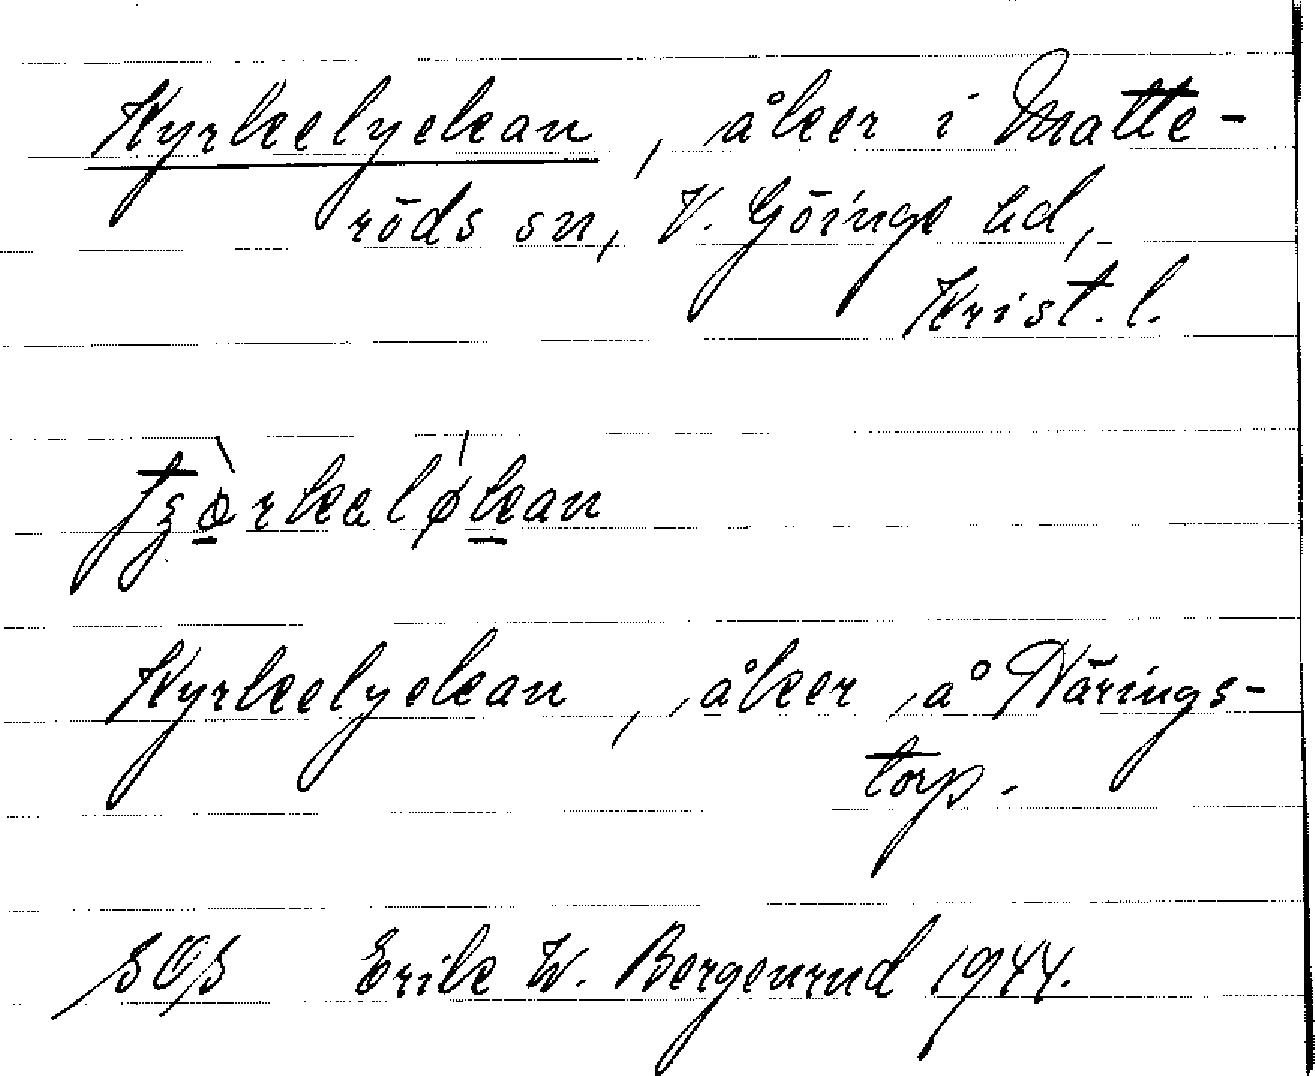 Kyrkelyckan, åker i Matte-
röds sn, V. Göinge hd,
Krist. l.
Kyrkelyckan, åker å Närings-
torp.
SOS Erik W. Bergenrud 1944.